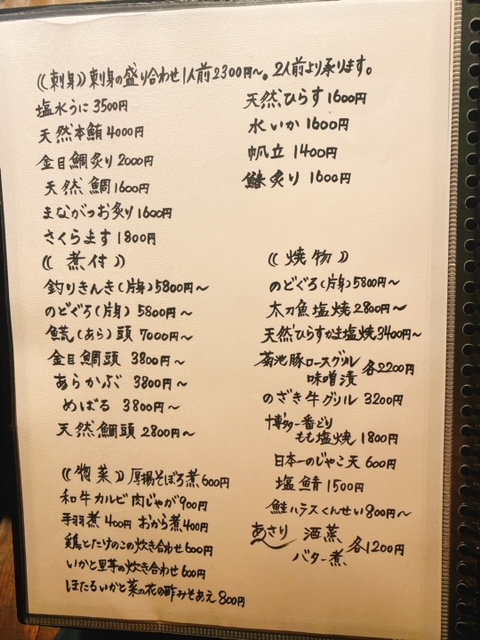 《刺身》刺身の盛り合わせ1人前2300円〜。2人前より承ります。
塩水うに 3500円
天然本鮪 4000円
金目鯛炙り 2000円
天然鯛 1600円
まながつお炙り 1600円
さくらます 1800円
天然ひらす 1600円
水いか 1600円
帆立 1400円
鯵炙り 1600円
《煮付》
釣りきんき(片身)5800円〜
のどぐろ(片身) 5800円〜
鱿(あら)頭 7000円〜
金目鯛頭 3800円〜
あらかぶ 3800円〜
めばる 3800円〜
天然鯛頭 2800円〜
《焼物》
のどぐろ(片身)5800円〜
太刀魚塩焼 2800円〜
天然ひらすかま塩焼 3400円〜
菊池豚ロースグリル
味噌漬 各2200円
のざき牛グリル 3200円
博多一番どり
もも塩焼 1800円
日本一のじゃこ天 600円
塩鯖 1500円
鮭ハラスくんせい 800円〜
あさり 酒蒸
バター煮 各1200円
《惣菜》厚揚そぼろ煮 600円
和牛カルビ肉じゃが 900円
手羽煮 400円 おから煮 400円
鶏とたけのこの炊き合わせ 600円
いかと里芋の炊き合わせ 600円
ほたるいかと菜の花の酢みそあえ 800円